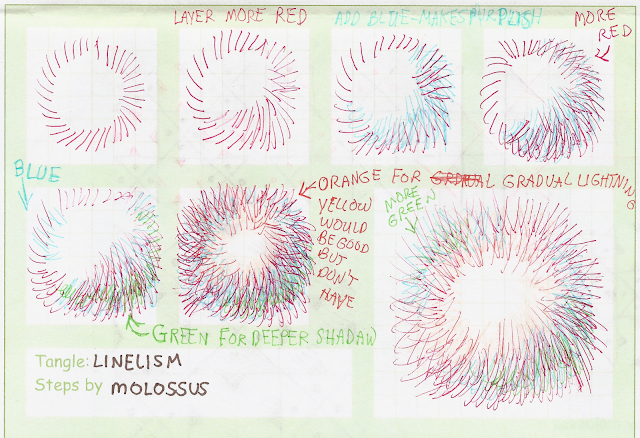 LAYER MORE RED
ADD BLUE-MAKES PURPLISH
MORE
RED
BLUE
ORANGE FOR GRADUAL GRADUAL LIGHTNING
YELLOW
WOULD
BE GOOD
BUT
DON'T
HAVE
MORE
GREEN
GREEN FOR DEEPER SHADAW
Tangle: LINELISM
Steps by MOLOSSUS